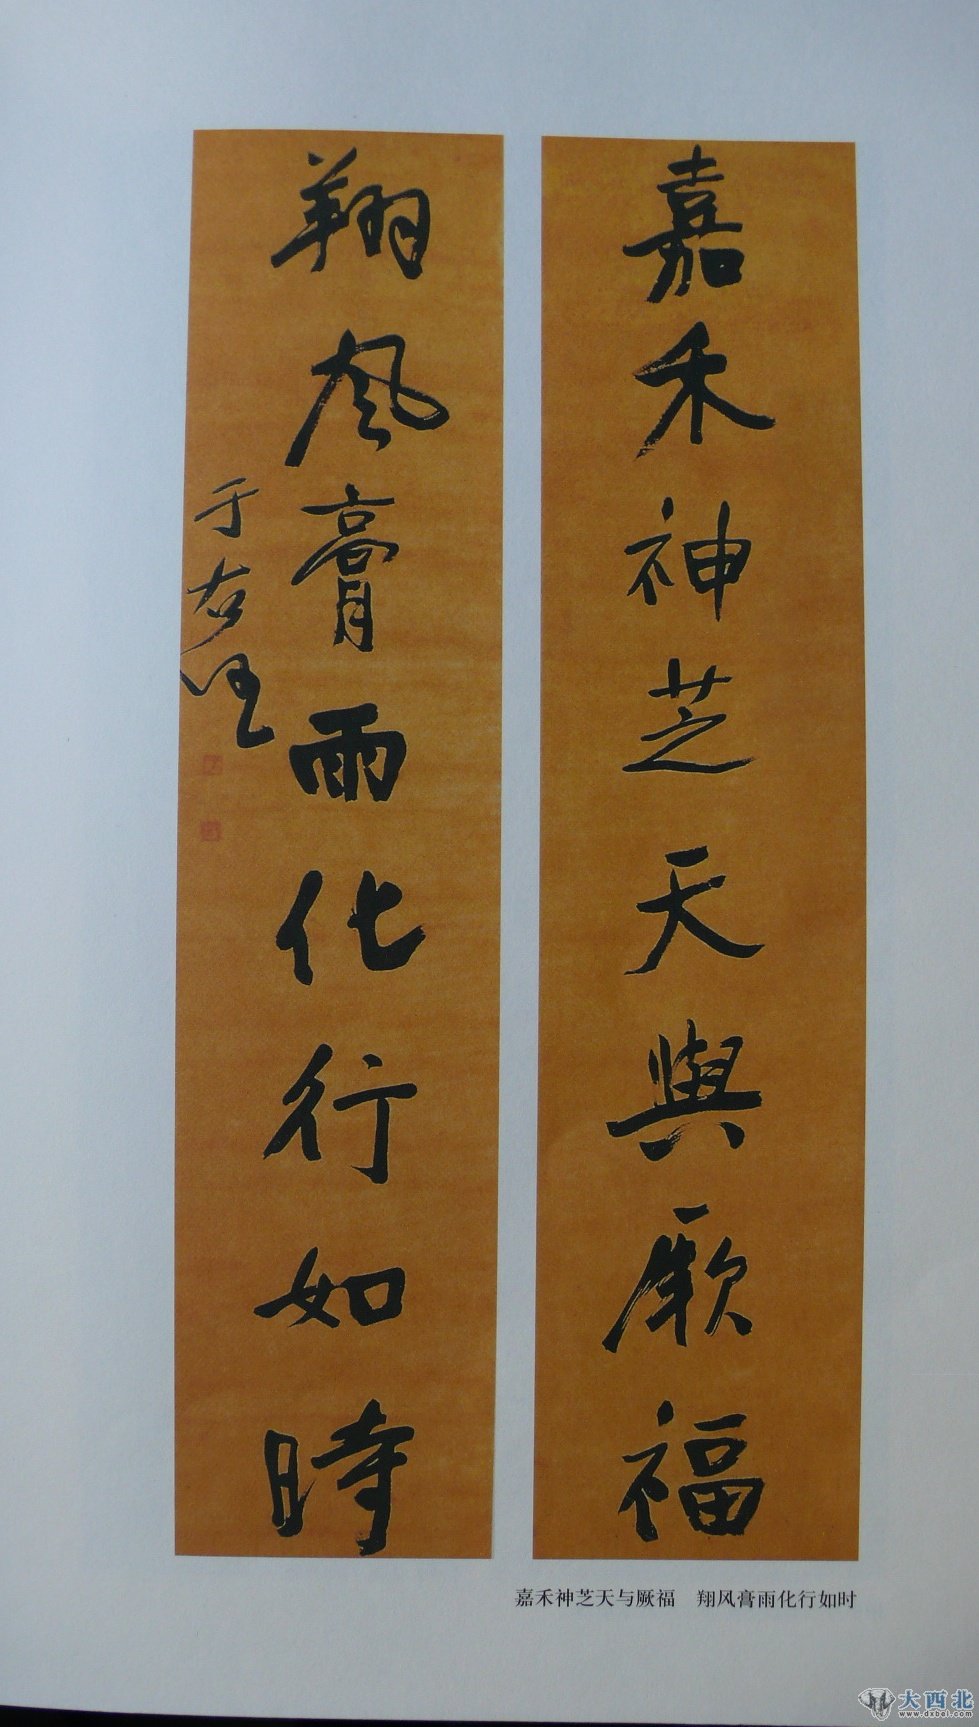 嘉禾神芝天與厥福
翔風膏雨化行如時
于右任
嘉禾神芝天与厥福　翔风膏雨化行如时
大西北
www.dxbei.com